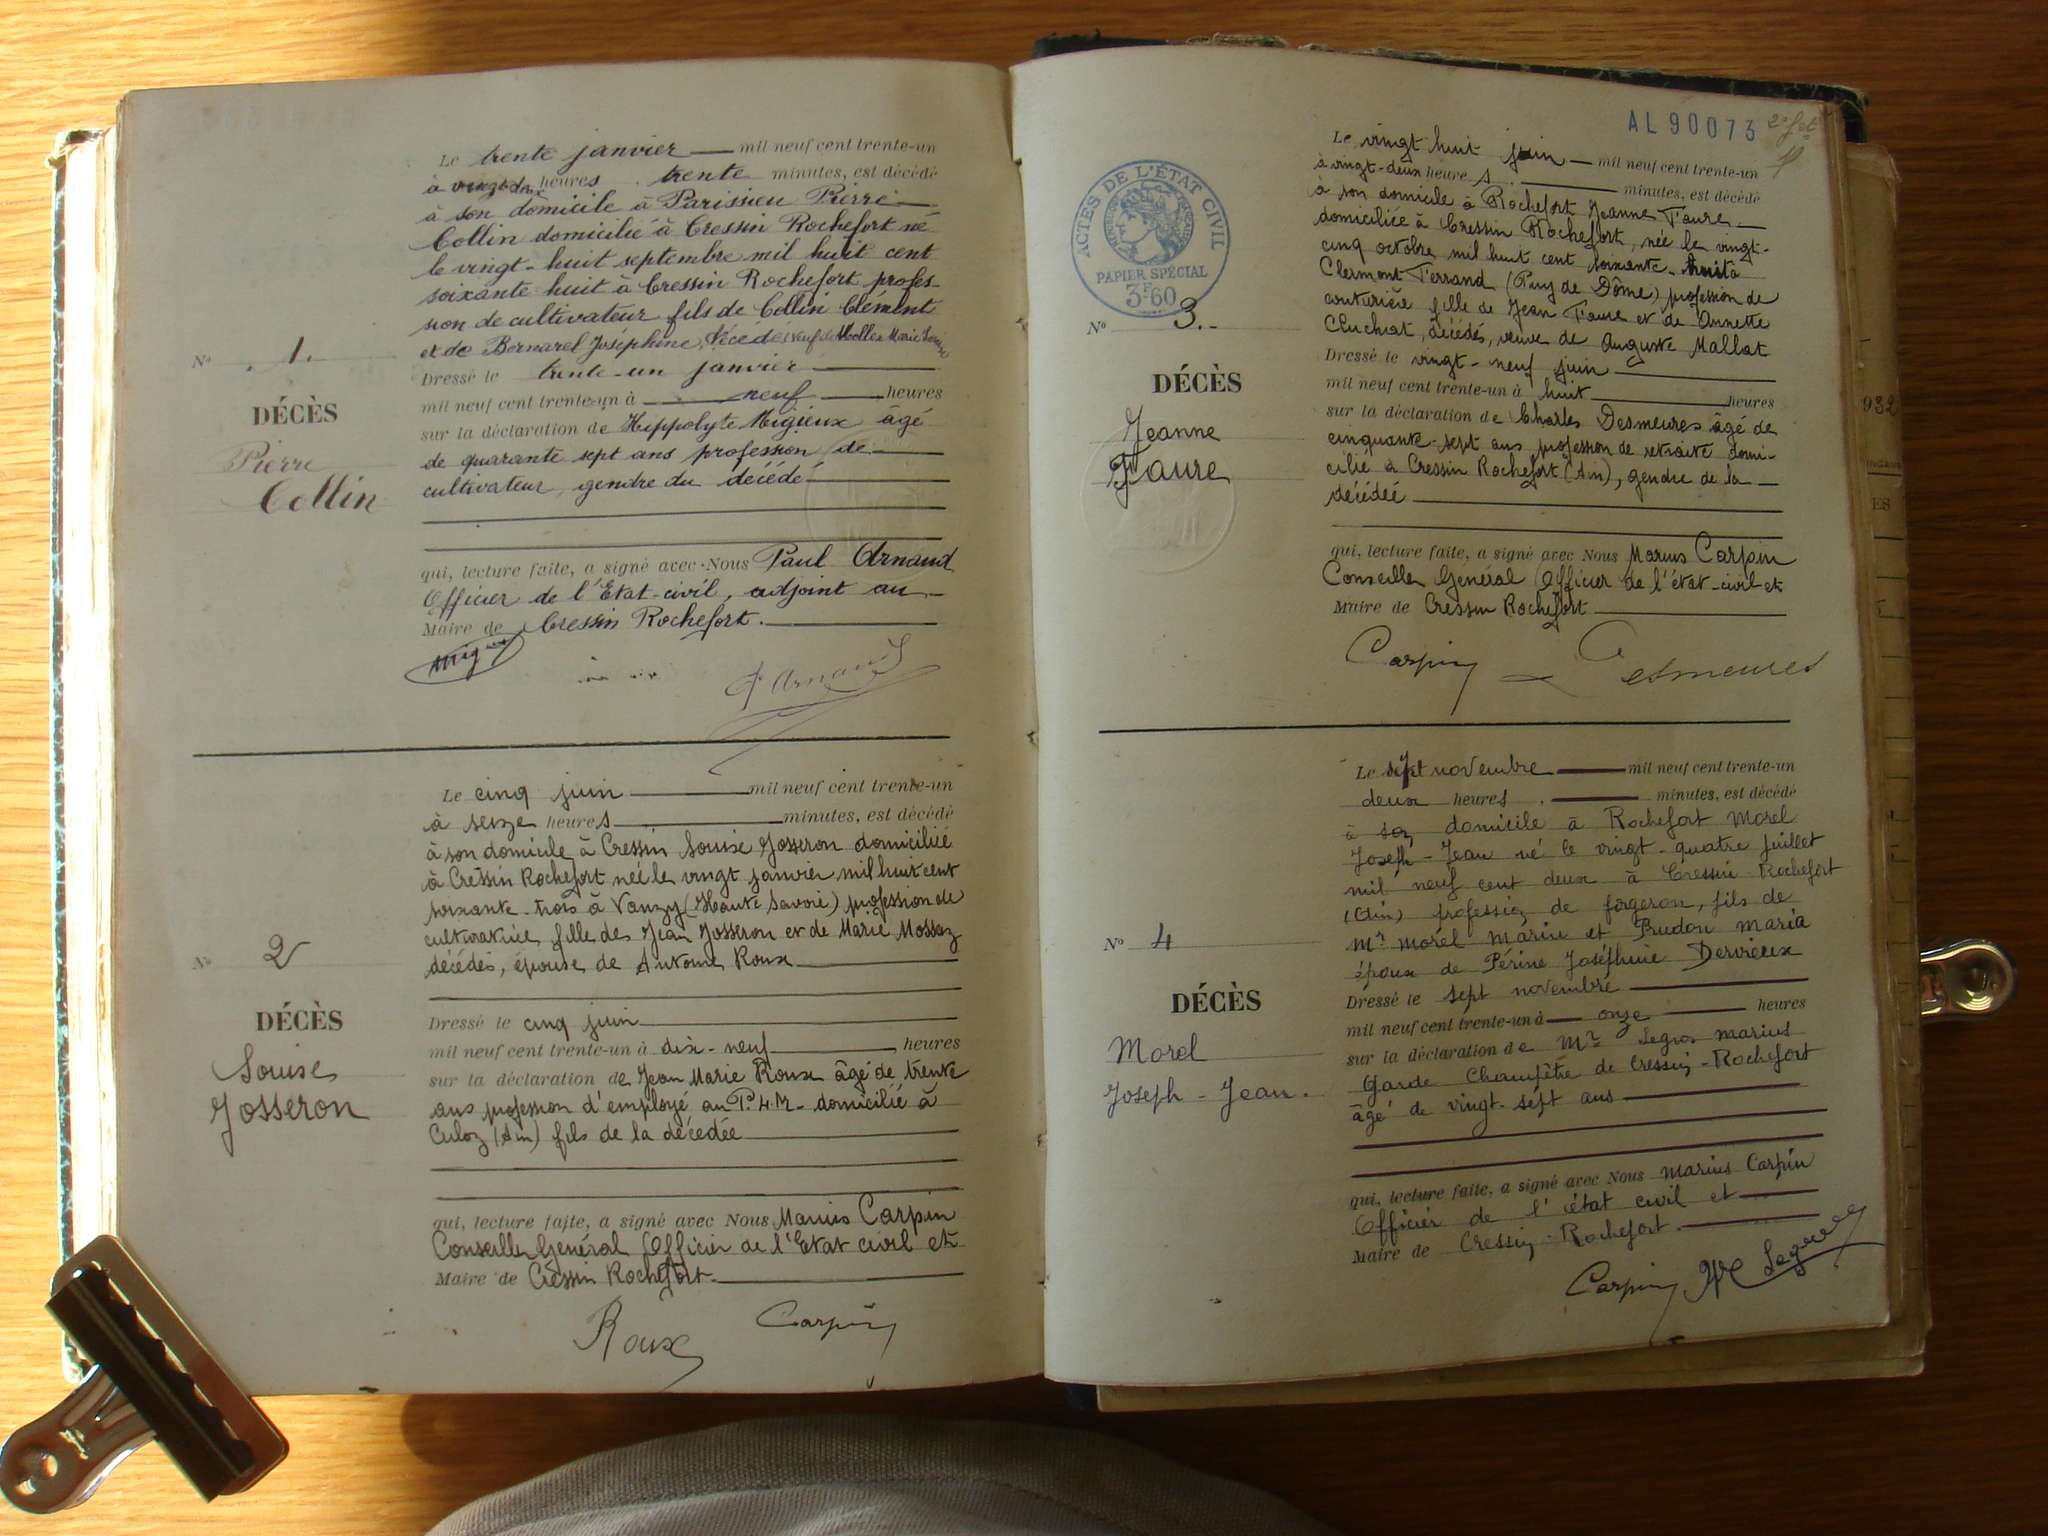 Le trente janvier mil neuf cent trente-un
à vingt-deux heures trente minutes, est décédé
à son domicile à Parissieu Pierre
Collin domicilié à Cressin Rochefort né
le vingt-huit septembre mil huit cent
soixante huit à Cressin Rochefort profes-
sion de cultivateur fils de Collin Clément
et de Bernard Joséphine, décédés veuf de Mollex Marie
Nº 1.
DÉCÈS
Pierre
Collin
Dressé le trente-un janvier
mil neuf cent trente-un à neuf heures
sur la déclaration de Hippolyte Migieux âgé
de quarante sept ans profession de
cultivateur, gendre du décédé
qui, lecture faite, a signé avec Nous Paul Arnaud
Officier de l'Etat-civil, adjoint au
Maire de Cressin Rochefort.
P. Arnaud
Le cinq juin mil neuf cent trente-un
à seize heures minutes, est décédé
à son domicile à Cressin Louise Josseron domiciliée
à Cressin Rochefort née le vingt janvier mil huit cent
soixante-trois à Vanzy (Haute Savoie) profession de
cultivatrice, fille de Jean Josseron et de Marie Mossaz
décédés, épouse de Antoine Roux
Nº 2
DÉCÈS
Louise
Josseron
Dressé le cinq juin
mil neuf cent trente-un à dix-neuf heures
sur la déclaration de Jean Marie Roux âgé de trente
ans profession d'employé au P.L.M. domicilié à
Culoz (Ain) fils de la décédée
qui, lecture faite, a signé avec Nous Marius Carpin
Conseiller Général Officier de l'Etat civil et
Maire de Cressin Rochefort.
Roux Carpin
AL 90073
ACTES DE L'ÉTAT CIVIL
PAPIER SPÉCIAL
3F60
Le vingt huit juin mil neuf cent trente-un
à vingt-deux heures minutes, est décédé
à son domicile à Rochefort Jeanne Faure
domiciliée à Cressin Rochefort, née le vingt-
cinq octobre mil huit cent soixante à
Clermont Ferrand (Puy de Dôme) profession de
couturière fille de Jean Faure et de Annette
Cluchat, décédés, veuve de Auguste Mallat
Nº 3.
DÉCÈS
Jeanne
Faure
Dressé le vingt-neuf juin
mil neuf cent trente-un à huit heures
sur la déclaration de Charles Desmeures âgé de
cinquante-sept ans profession de retraité domi-
cilié à Cressin Rochefort (Ain), gendre de la
décédée
qui, lecture faite, a signé avec Nous Marius Carpin
Conseiller Général Officier de l'état-civil et
Maire de Cressin Rochefort
Carpin Desmeures
Le sept novembre mil neuf cent trente-un
deux heures minutes, est décédé
à son domicile à Rochefort Morel
Joseph-Jean né le vingt-quatre juillet
mil neuf cent deux à Cressin-Rochefort
(Ain) profession de forgeron, fils de
Mr Morel Marin et Prudon Maria
époux de Périne Joséphine Dervieux
Nº 4
DÉCÈS
Morel
Joseph-Jean.
Dressé le sept novembre
mil neuf cent trente-un à onze heures
sur la déclaration de Mr Legros Marius
Garde Champêtre de Cressin-Rochefort
âgé de vingt-sept ans
qui, lecture faite, a signé avec Nous Marius Carpin
Officier de l'état civil et
Maire de Cressin-Rochefort.
Carpin
932
ES